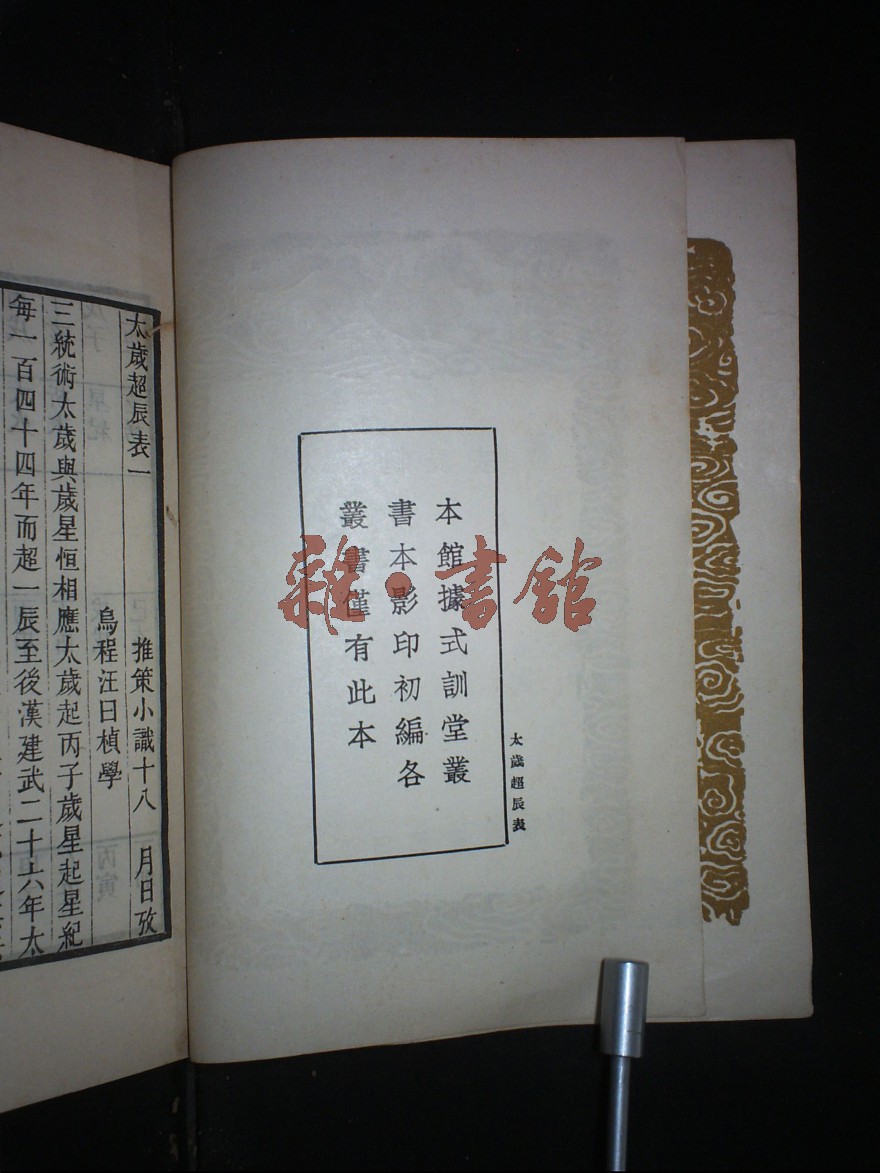 本館據式訓堂叢
書本影印初編各
叢書僅有此本
太歲超辰表
太歲超辰表一 推策小識十八 月日攷
烏程汪曰楨學
三統術太歲與歲星恒相應太歲起丙子歲星起星紀
每一百四十四年而超一辰至後漢建武二十六年太
雅·書館